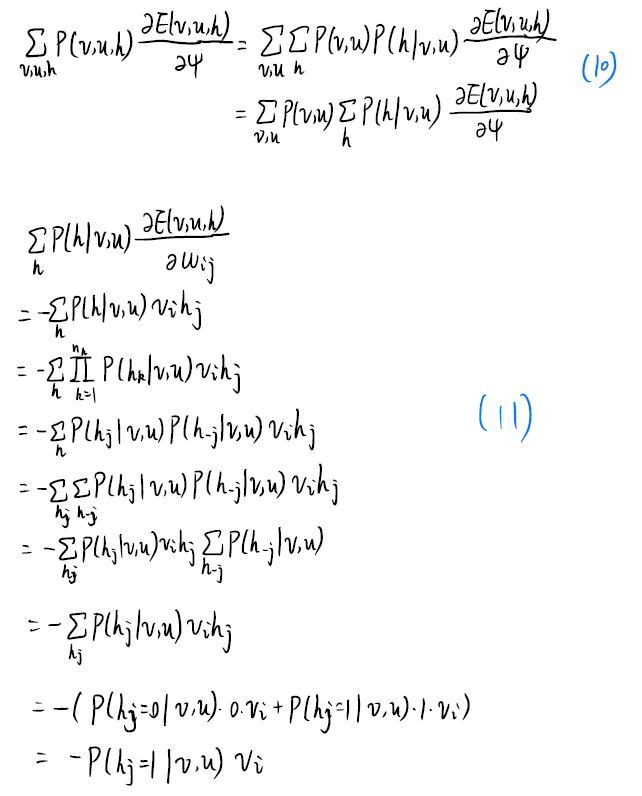 ∑_{v,u,h} P(v,u,h) ∂E(v,u,h)/∂ψ = ∑_{v,u} ∑_h P(v,u) P(h|v,u) ∂E(v,u,h)/∂ψ
= ∑_{v,u} P(v,u) ∑_h P(h|v,u) ∂E(v,u,h)/∂ψ (10)
∑_h P(h|v,u) ∂E(v,u,h)/∂w_{ij}
= -∑_h P(h|v,u) v_i h_j
= -∑_h ∏_{k=1}^{n_h} P(h_k|v,u) v_i h_j
= -∑_h P(h_j|v,u) P(h_{-j}|v,u) v_i h_j (11)
= -∑_{h_j} ∑_{h_{-j}} P(h_j|v,u) P(h_{-j}|v,u) v_i h_j
= -∑_{h_j} P(h_j|v,u) v_i h_j ∑_{h_{-j}} P(h_{-j}|v,u)
= -∑_{h_j} P(h_j|v,u) v_i h_j
= -( P(h_j=0|v,u)·0·v_i + P(h_j=1|v,u)·1·v_i )
= -P(h_j=1|v,u) v_i